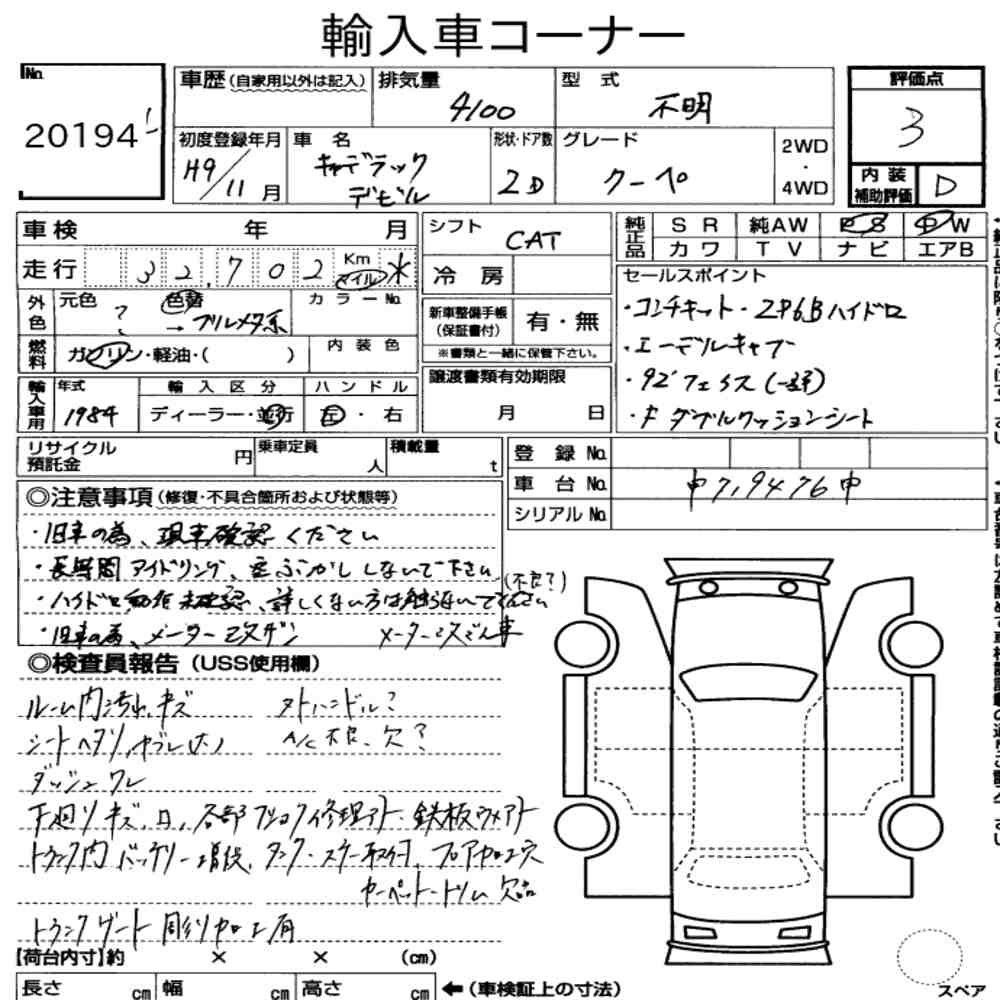 輸入車コーナー
No.
20194
車歴(自家用以外は記入)
排気量
4100
型式
不明
評価点
3
初度登録年月
H9/11月
車名
キャデラック
デビル
形状・ドア数
2D
グレード
クーペ
2WD
・
4WD
内装
補助評価
D
車検 年 月
走行 32,702 Km マイル
シフト
CAT
冷房
純正品
SR 純AW PS PW
カワ TV ナビ エアB
外色
元色 ?
色替
→ ブルメタ系
カラーNo.
燃料
ガソリン・軽油・( )
内装色
新車整備手帳
(保証書付)
有・無
※書類と一緒に保管下さい。
セールスポイント
・コンチキット・2P6Bハイドロ
・エーデルキャブ
・92'フェイス(一部)
・F ダブルクッションシート
輸入車用
年式
1984
輸入区分
ディーラー・並行
ハンドル
左・右
譲渡書類有効期限
月 日
リサイクル
預託金
円
乗車定員
人
積載量
t
登録No.
車台No.
中7,9476中
シリアルNo.
◎注意事項(修復・不具合箇所および状態等)
・旧車の為、現車確認ください
・長時間アイドリング、空ぶかししないで下さい
(不良?)
・ハイドロ動作未確認、詳しくない方は触らないでください
・旧車の為、メーター改ザン メーター改ざん車
◎検査員報告(USS使用欄)
ルーム内汚れ、キズ 外ハンドル?
シートヘタリ、ヤブレ大 A/C不良、欠?
ダッシュワレ
下廻りキズ、凹、各部 修理アト 鉄板ウメアト
トランク内バッテリー増設、タンク・スケー取付、フロア加工穴
カーペット・トリム欠品
トランクゲート彫り加工有
【荷台内寸】約 × × (cm)
長さ cm 幅 cm 高さ cm ←(車検証上の寸法)
スペア